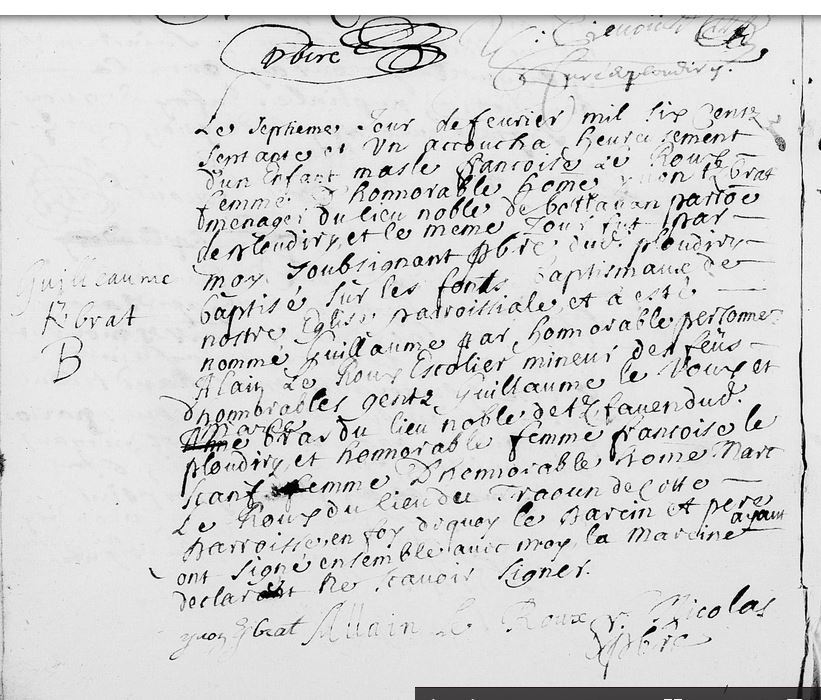 pbre
Le septieme Jour de fevrier mil six Centz
septante et Un accoucha heureusement
d'un Enfant masle francoise Le Roux
femme D'honnorable home yvon Kbrat
menager du lieu noble de parroe
de ploudiry, et le meme Jour fut par
moy soubsignant pbre dud. ploudiry
baptisé sur les fonts baptismaux de
nostre Eglise parroissiale, et a esté
nommé Guillaume par honnorable personne
Alain Le Roux Escolier mineur des feüs
d'honnorables gentz Guillaume le Roux et
Marie du lieu noble de dud.
ploudiry et honnorable femme francoise le
Scanf femme D'honnorable home Marc
Le Roux du lieu du Traoun de Cette
parroisse, en foy de quoy le parein et pere
ont signé ensemble avec moy la Mareine ayant
declaré Ne scavoir signer.
Guilleaume
Kbrat
B
yvon Kbrat Allain Le Roux Y. Nicolas
pbre